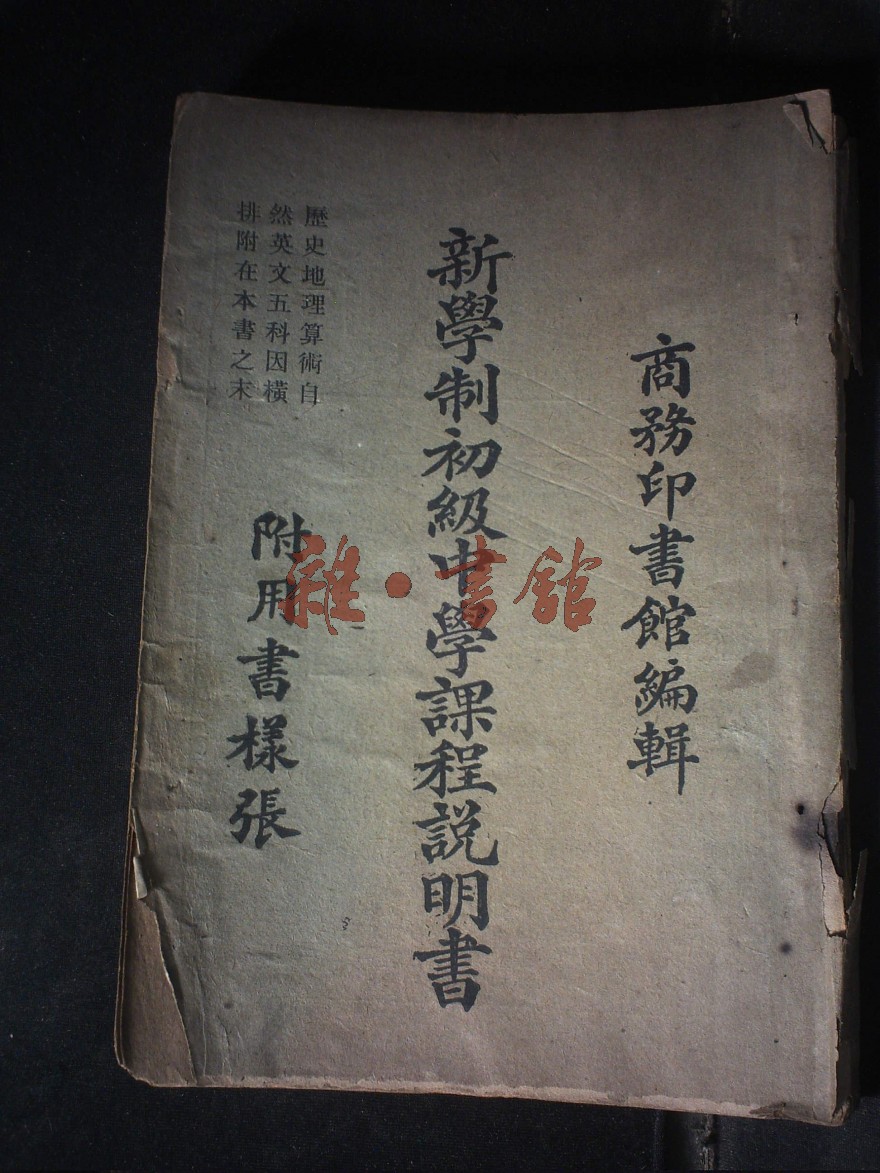 商務印書館編輯
新學制初級中學課程說明書
歷史地理算術自
然英文五科因橫
排附在本書之末
附用書樣張
雜·書館